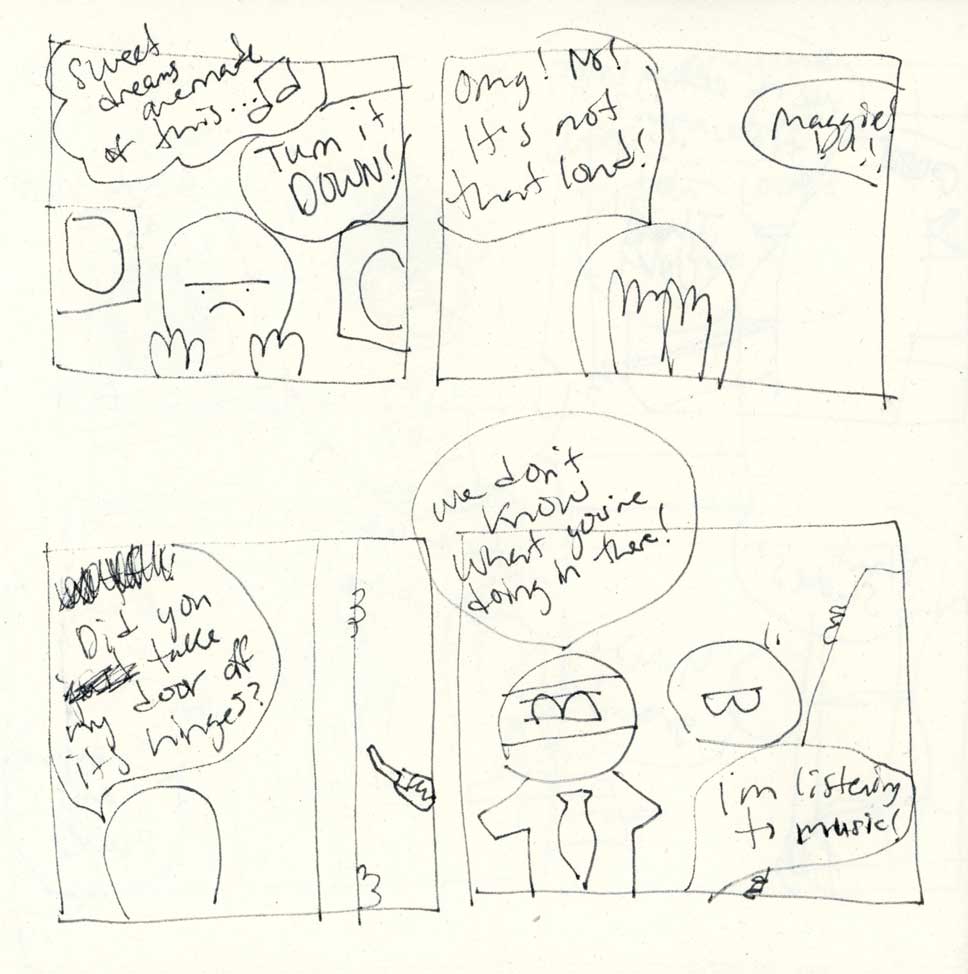 Sweet
dreams
are made
of this...
Turn it
DOWN!
Omg! No!
It's not
that loud!
Maggie!
Did you
take
my door off
its hinges?
we don't
know
what you're
doing in there!
i'm listening
to music!